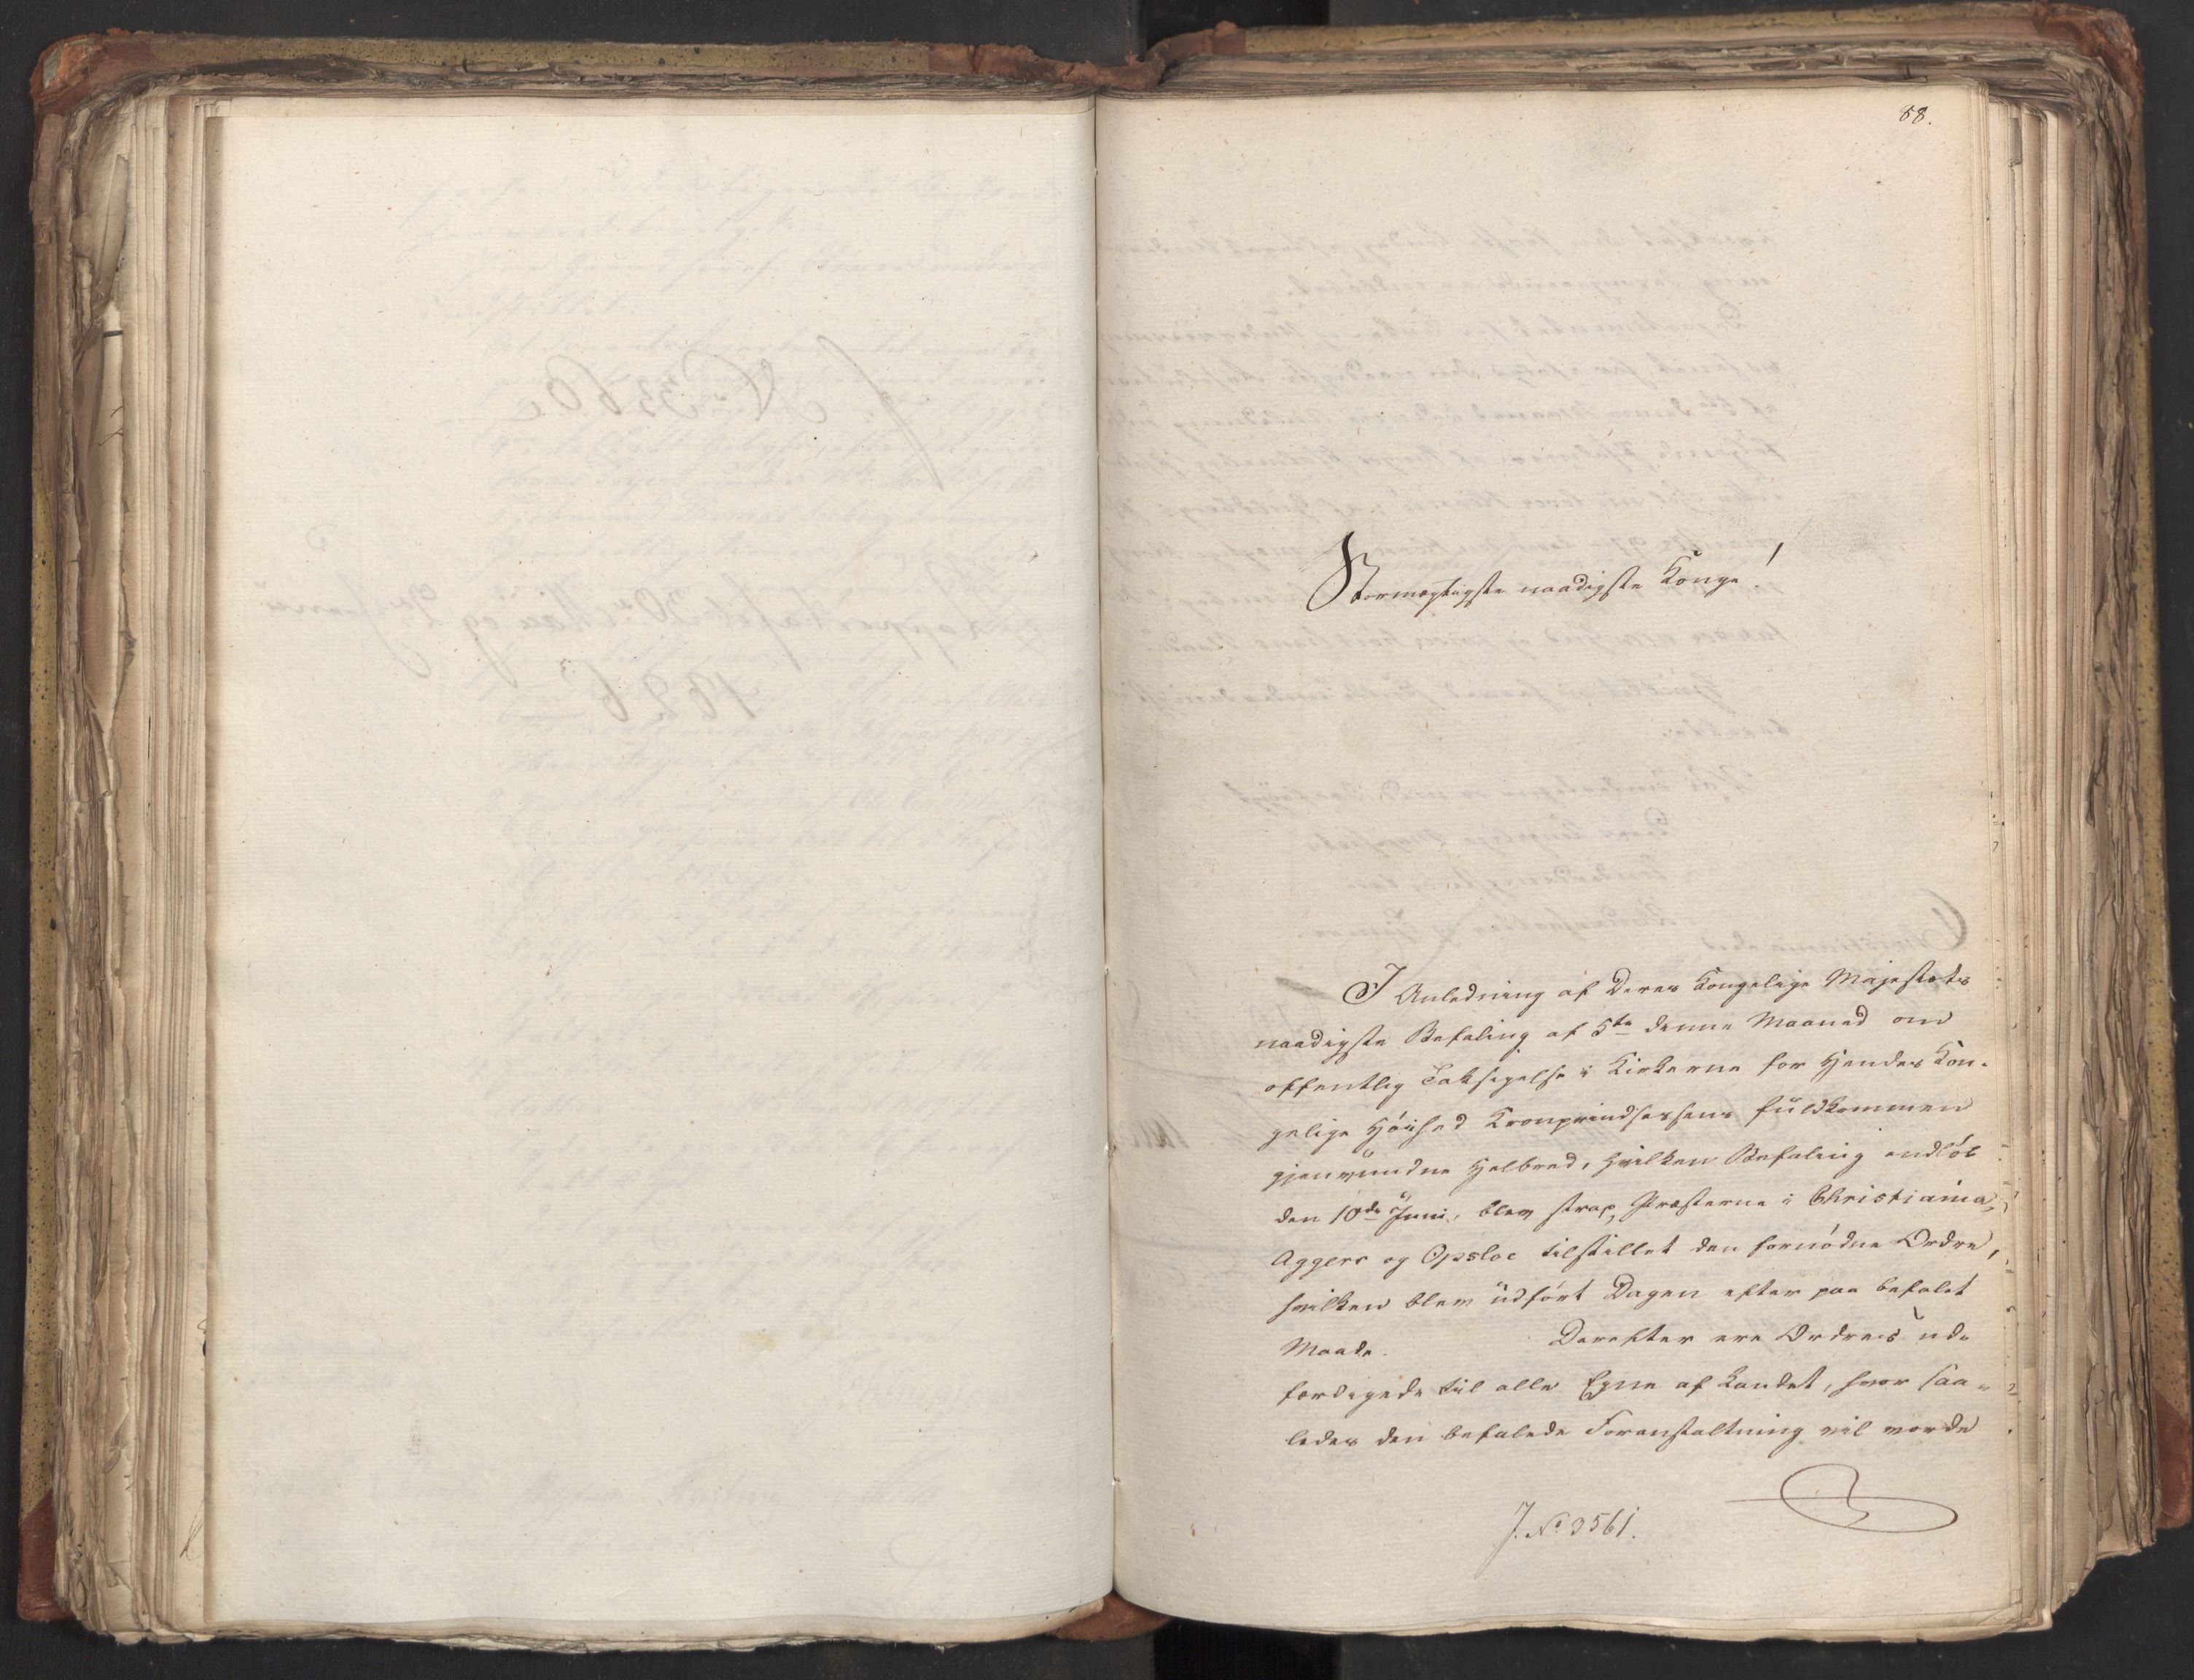 88.
Stormægtigste naadigste Konge!
I Anledning af Deres Kongelige Majestæts
naadigste Befaling af 5te denne Maaned om
offentlig Taksigelse i Kirkerne for Hendes Kon-
gelige Höihed Kronprindsessens fuldkommen
gjenvundne Helbred, hvilken Befaling indlöb
den 10de Juni, blev strax Præsterne i Christiania,
Aggers og Opsloe tilstillet den fornödne Ordre,
hvilken blev udfört Dagen efter paa befalet
Maade. Derefter ere Ordres ud-
færdigede til alle Egne af Landet, hvor saa-
ledes den befalede Foranstaltning vil vorde
J. No 3561.